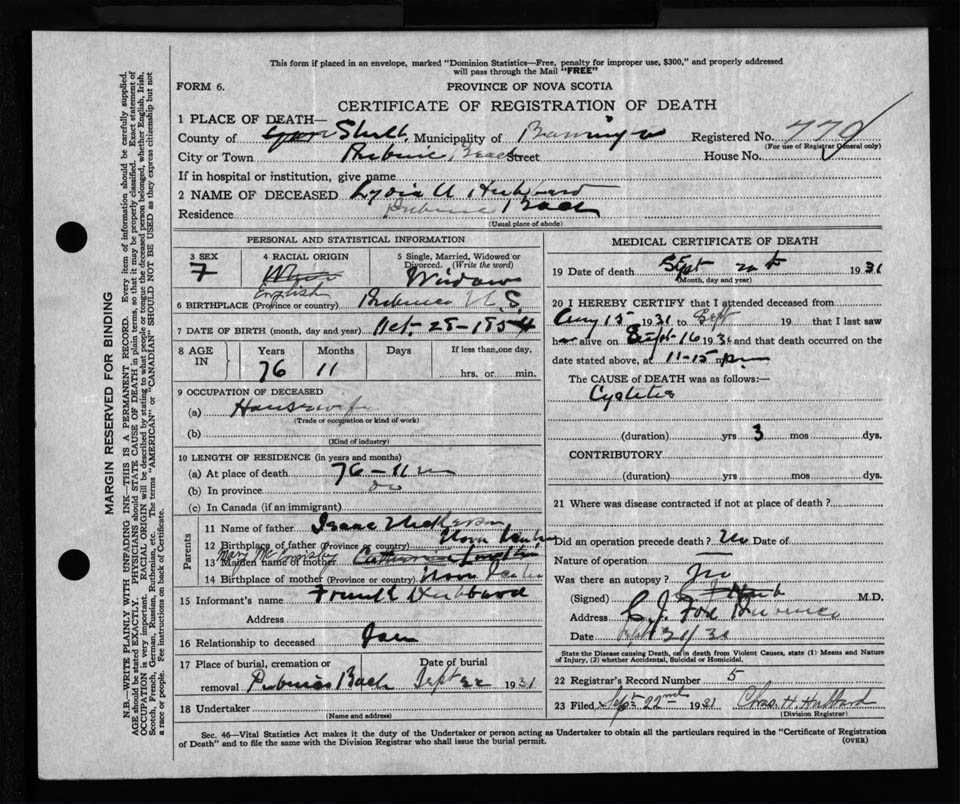 This form if placed in an envelope, marked "Dominion Statistics—Free, penalty for improper use, $300," and properly addressed
will pass through the Mail "FREE"
FORM 6.
PROVINCE OF NOVA SCOTIA
CERTIFICATE OF REGISTRATION OF DEATH
1 PLACE OF DEATH—
County of Shelb Municipality of Barrington Registered No.
(For use of Registrar General only)
City or Town Beach Street House No.
If in hospital or institution, give name
2 NAME OF DECEASED Lydia A Hubbard
Residence Bach
(Usual place of abode)
PERSONAL AND STATISTICAL INFORMATION
3 SEX
4 RACIAL ORIGIN
English
5 Single, Married, Widowed or
Divorced. (Write the word)
Widow
6 BIRTHPLACE (Province or country) N.S.
7 DATE OF BIRTH (month, day and year) Oct- 25-1854
8 AGE IN
Years
Months
Days
If less than one day,
76
11
hrs. or min.
9 OCCUPATION OF DECEASED
(a) Housewife
(Trade or occupation or kind of work)
(b)
(Kind of industry)
10 LENGTH OF RESIDENCE (in years and months)
(a) At place of death 76-11 m
(b) In province do
(c) In Canada (if an immigrant)
Parents
11 Name of father Isaac Nickerson
12 Birthplace of father (Province or country) Nova Scotia
13 Maiden name of mother Mary
14 Birthplace of mother (Province or country) Nova Scotia
15 Informant's name Frank Hubbard
Address
16 Relationship to deceased
17 Place of burial, cremation or
removal Bach
Date of burial
Sept 22 1931
18 Undertaker
(Name and address)
MEDICAL CERTIFICATE OF DEATH
19 Date of death Sept 1931
(Month, day and year)
20 I HEREBY CERTIFY that I attended deceased from
Aug 15 1931 to Sept 19 that I last saw
h alive on Sept-16 1931 and that death occurred on the
date stated above, at 11-15 pm
The CAUSE of DEATH was as follows:—
Cystitis
(duration) yrs 3 mos dys.
CONTRIBUTORY
(duration) yrs mos dys.
21 Where was disease contracted if not at place of death?
Did an operation precede death? No Date of
Nature of operation
Was there an autopsy? No
(Signed) M.D.
Address
Date
State the Disease causing Death, or in death from Violent Causes, state (1) Means and Nature
of Injury, (2) whether Accidental, Suicidal or Homicidal.
22 Registrar's Record Number 5
23 Filed, Sept 22nd 1931 Chas. H. Hubbard
(Division Registrar)
Sec. 46—Vital Statistics Act makes it the duty of the Undertaker or person acting as Undertaker to obtain all the particulars required in the "Certificate of Registration
of Death" and to file the same with the Division Registrar who shall issue the burial permit.
(OVER)
MARGIN RESERVED FOR BINDING
N.B.—WRITE PLAINLY WITH UNFADING INK—THIS IS A PERMANENT RECORD. Every item of information should be carefully supplied.
AGE should be stated EXACTLY. PHYSICIANS should STATE CAUSE OF DEATH in plain terms, so that it may be properly classified. Exact statement of
OCCUPATION is very important. RACIAL ORIGIN will be described by stating to what people or tongue the deceased person belonged, whether English, Irish,
Scotch, French, German, Russian, Ruthenian, etc. The terms "AMERICAN" or "CANADIAN" SHOULD NOT BE USED as they express citizenship but not
a race or people. See instructions on back of Certificate.